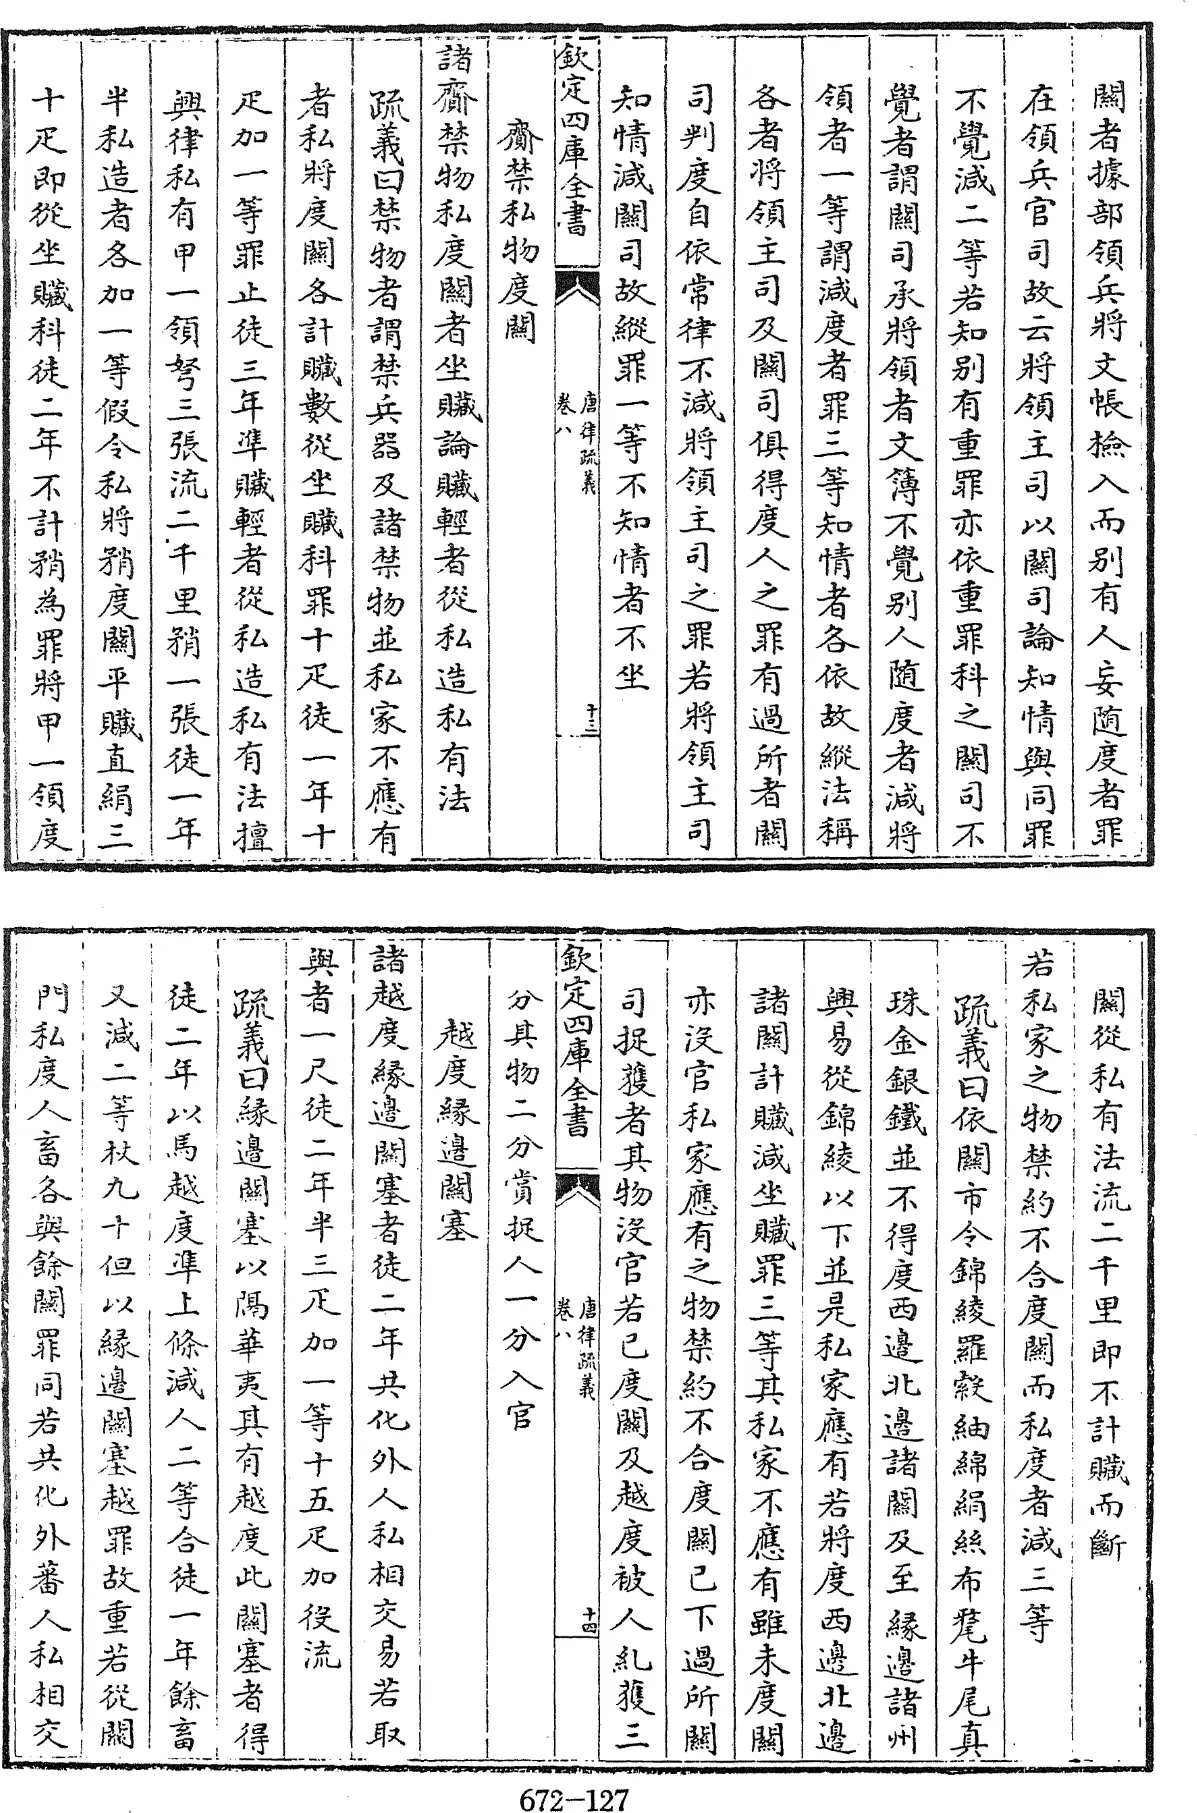 關者據部領兵將文帳檢入而别有人妄隨度者罪
在領兵官司故云將領主司以關司論知情與同罪
不覺減二等若知别有重罪亦依重罪科之關司不
覺者謂關司承將領者文簿不覺别人隨度者減將
領者一等謂減度者罪三等知情者各依故縱法稱
各者將領主司及關司俱得度人之罪有過所者關
司判度自依常律不減將領主司之罪若將領主司
知情減關司故縱罪一等不知情者不坐
欽定四庫全書
唐律疏義
卷八
十三
齎禁私物度關
諸齎禁物私度關者坐贓論贓輕者從私造私有法
疏義曰禁物者謂禁兵器及諸禁物並私家不應有
者私將度關各計贓數從坐贓科罪十疋徒一年十
疋加一等罪止徒三年準贓輕者從私造私有法擅
興律私有甲一領弩三張流二千里矟一張徒一年
半私造者各加一等假令私將矟度關平贓直絹三
十疋即從坐贓科徒二年不計矟為罪將甲一領度
關從私有法流二千里即不計贓而斷
若私家之物禁約不合度關而私度者減三等
疏義曰依關市令錦綾羅縠紬綿絹絲布氂牛尾真
珠金銀鐵並不得度西邊北邊諸關及至緣邊諸州
興易從錦綾以下並是私家應有若將度西邊北邊
諸關計贓減坐贓罪三等其私家不應有雖未度關
亦没官私家應有之物禁約不合度關已下過所關
司捉獲者其物没官若已度關及越度被人糺獲三
欽定四庫全書
唐律疏義
卷八
十四
分其物二分賞捉人一分入官
越度緣邊關塞
諸越度緣邊關塞者徒二年共化外人私相交易若取
與者一尺徒二年半三疋加一等十五疋加役流
疏義曰緣邊關塞以隔華夷其有越度此關塞者得
徒二年以馬越度準上條減人二等合徒一年餘畜
又減二等杖九十但以緣邊關塞越罪故重若從關
門私度人畜各與餘關罪同若共化外蕃人私相交
672-127